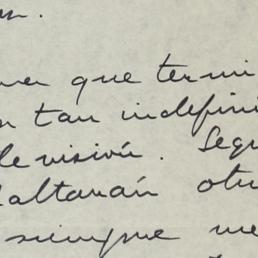 que termi
tan indefini
levisión. Segu
faltarán otr
siempre me